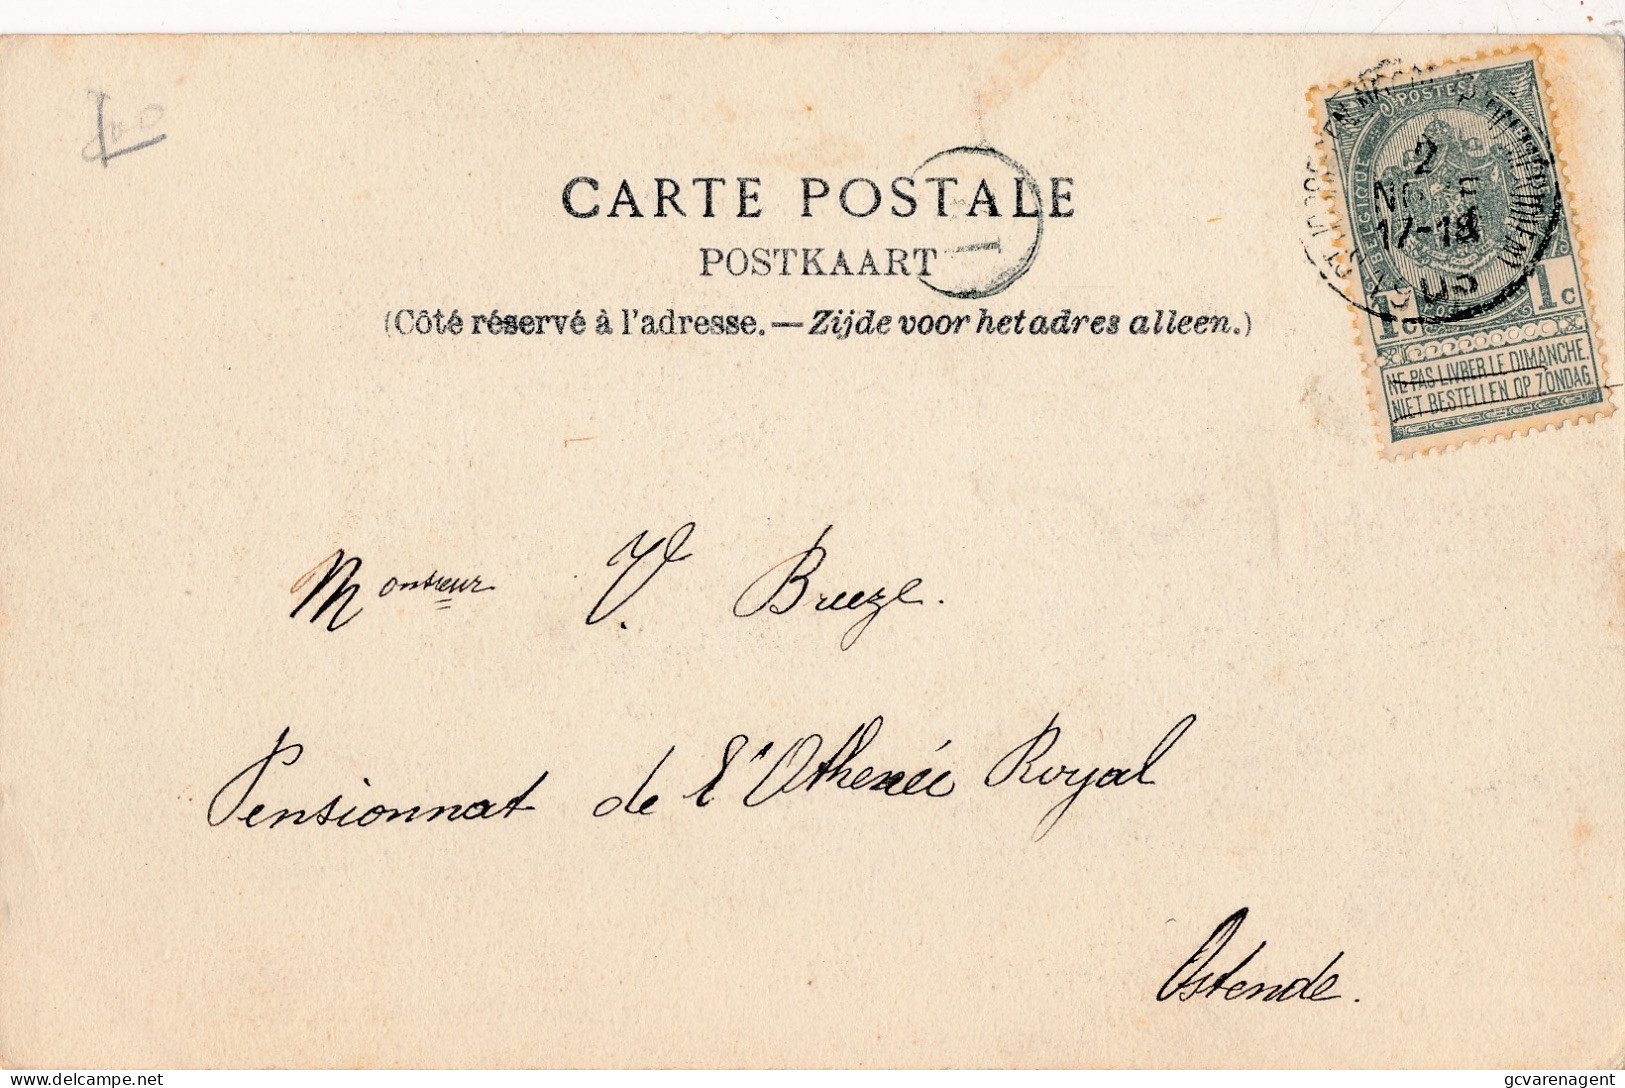 CARTE POSTALE
POSTKAART
(Côté réservé à l'adresse. — Zijde voor het adres alleen.)
POSTES
BELGIQUE
2
17-18
1c 1c
NE PAS LIVRER LE DIMANCHE.
NIET BESTELLEN OP ZONDAG.
1
Monsieur V. Breeze.
Pensionnat de l'Athenée Royal
Ostende.
delcampe.net
gcvarenagent